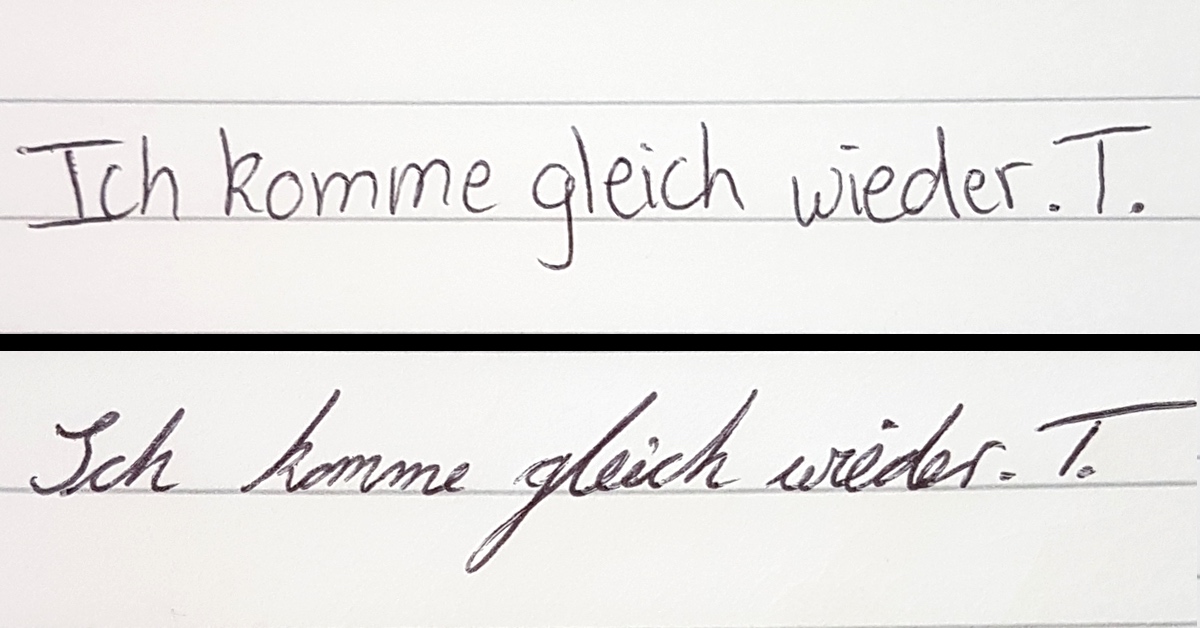 Ich komme gleich wieder. T.
Ich komme gleich wieder. T.